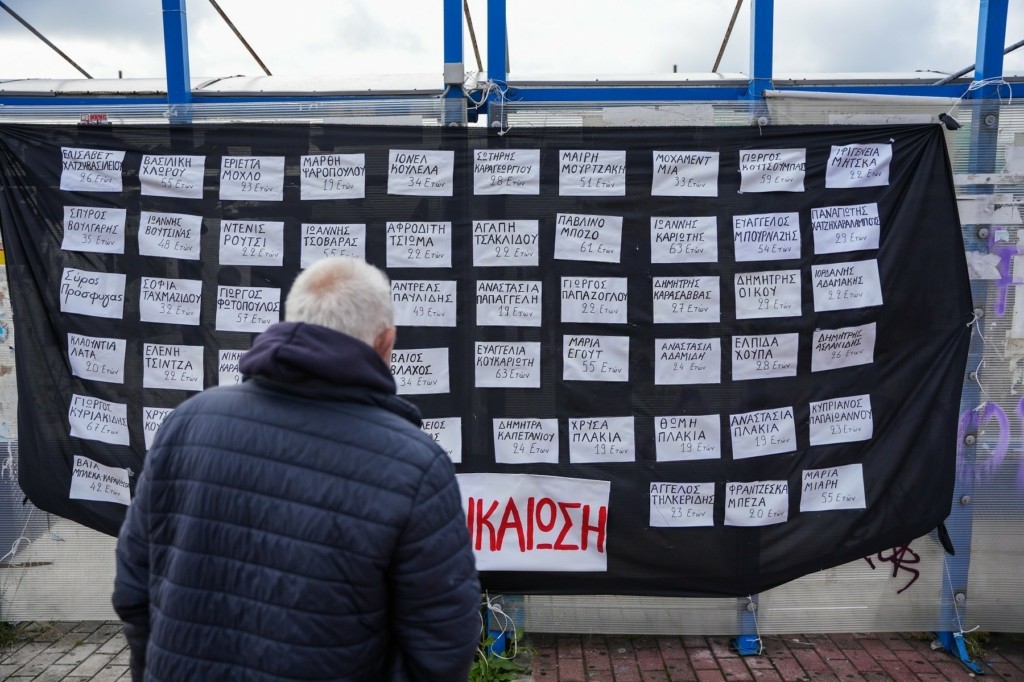 ΕΛΙΣΑΒΕΤ
ΧΑΤΖΗΒΑΣΙΛΕΙΟΥ
26 Ετών
ΒΑΣΙΛΙΚΗ
ΧΛΩΡΟΥ
55 Ετών
ΕΡΙΕΤΤΑ
ΜΟΛΧΟ
23 Ετών
ΜΑΡΘΗ
ΨΑΡΟΠΟΥΛΟΥ
19 Ετών
ΙΟΝΕΛ
ΚΟΥΛΕΛΑ
34 Ετών
ΣΩΤΗΡΗΣ
ΚΑΡΑΓΕΩΡΓΙΟΥ
28 Ετών
ΜΑΙΡΗ
ΜΟΥΡΤΖΑΚΗ
51 Ετών
ΜΟΧΑΜΕΝΤ
ΜΙΑ
33 Ετών
ΓΙΩΡΓΟΣ
ΚΟΥΤΣΟΥΜΠΑΣ
59 Ετών
ΙΦΙΓΕΝΕΙΑ
ΜΗΤΣΚΑ
22 Ετών
ΣΠΥΡΟΣ
ΒΟΥΛΓΑΡΗΣ
35 Ετών
ΙΩΑΝΝΗΣ
ΒΟΥΤΣΙΝΑΣ
48 Ετών
ΝΤΕΝΙΣ
ΡΟΥΤΣΙ
22 Ετών
ΙΩΑΝΝΗΣ
ΤΣΟΒΑΡΑΣ
55 Ετών
ΑΦΡΟΔΙΤΗ
ΤΣΙΩΜΑ
22 Ετών
ΑΓΑΠΗ
ΤΣΑΚΛΙΔΟΥ
22 Ετών
ΠΑΒΛΙΝΟ
ΜΠΟΖΟ
61 Ετών
ΙΩΑΝΝΗΣ
ΚΑΡΙΩΤΗΣ
63 Ετών
ΕΥΑΓΓΕΛΟΣ
ΜΠΟΥΡΝΑΖΗΣ
54 Ετών
ΠΑΝΑΓΙΩΤΗΣ
ΧΑΤΖΗΧΑΡΑΛΑΜΠΟΥΣ
29 Ετών
Σύρος
Πρόσφυγας
ΣΟΦΙΑ
ΤΑΧΜΑΖΙΔΟΥ
32 Ετών
ΓΙΩΡΓΟΣ
ΦΩΤΟΠΟΥΛΟΣ
57 Ετών
ΑΝΤΡΕΑΣ
ΠΑΥΛΙΔΗΣ
49 Ετών
ΑΝΑΣΤΑΣΙΑ
ΠΑΠΑΓΓΕΛΗ
19 Ετών
ΓΙΩΡΓΟΣ
ΠΑΠΑΖΟΓΛΟΥ
22 Ετών
ΔΗΜΗΤΡΗΣ
ΚΑΡΑΣΑΒΒΑΣ
27 Ετών
ΔΗΜΗΤΡΗΣ
ΟΙΚΟΥ
29 Ετών
ΙΟΡΔΑΝΗΣ
ΑΔΑΜΑΚΗΣ
22 Ετών
ΚΛΑΟΥΝΤΙΑ
ΛΑΤΑ
20 Ετών
ΕΛΕΝΗ
ΤΕΙΝΤΖΑ
22 Ετών
ΒΑΙΟΣ
ΒΛΑΧΟΣ
34 Ετών
ΕΥΑΓΓΕΛΙΑ
ΚΟΥΚΑΡΙΩΤΗ
63 Ετών
ΜΑΡΙΑ
ΕΓΟΥΤ
55 Ετών
ΑΝΑΣΤΑΣΙΑ
ΑΔΑΜΙΔΗ
24 Ετών
ΕΛΠΙΔΑ
ΧΟΥΠΑ
28 Ετών
ΔΗΜΗΤΡΗΣ
ΑΣΛΑΝΙΔΗΣ
26 Ετών
ΓΙΩΡΓΟΣ
ΚΥΡΙΑΚΙΔΗΣ
67 Ετών
ΔΗΜΗΤΡΑ
ΚΑΠΕΤΑΝΙΟΥ
24 Ετών
ΧΡΥΣΑ
ΠΛΑΚΙΑ
19 Ετών
ΘΩΜΗ
ΠΛΑΚΙΑ
19 Ετών
ΑΝΑΣΤΑΣΙΑ
ΠΛΑΚΙΑ
19 Ετών
ΚΥΠΡΙΑΝΟΣ
ΠΑΠΑΙΩΑΝΝΟΥ
23 Ετών
ΒΑΙΑ
ΜΠΛΕΚΑ
42 Ετών
ΑΓΓΕΛΟΣ
ΤΗΛΚΕΡΙΔΗΣ
23 Ετών
ΦΡΑΝΤΖΕΣΚΑ
ΜΠΕΖΑ
20 Ετών
ΜΑΡΙΑ
ΜΙΑΡΗ
55 Ετών
ΙΚΑΙΩΣΗ